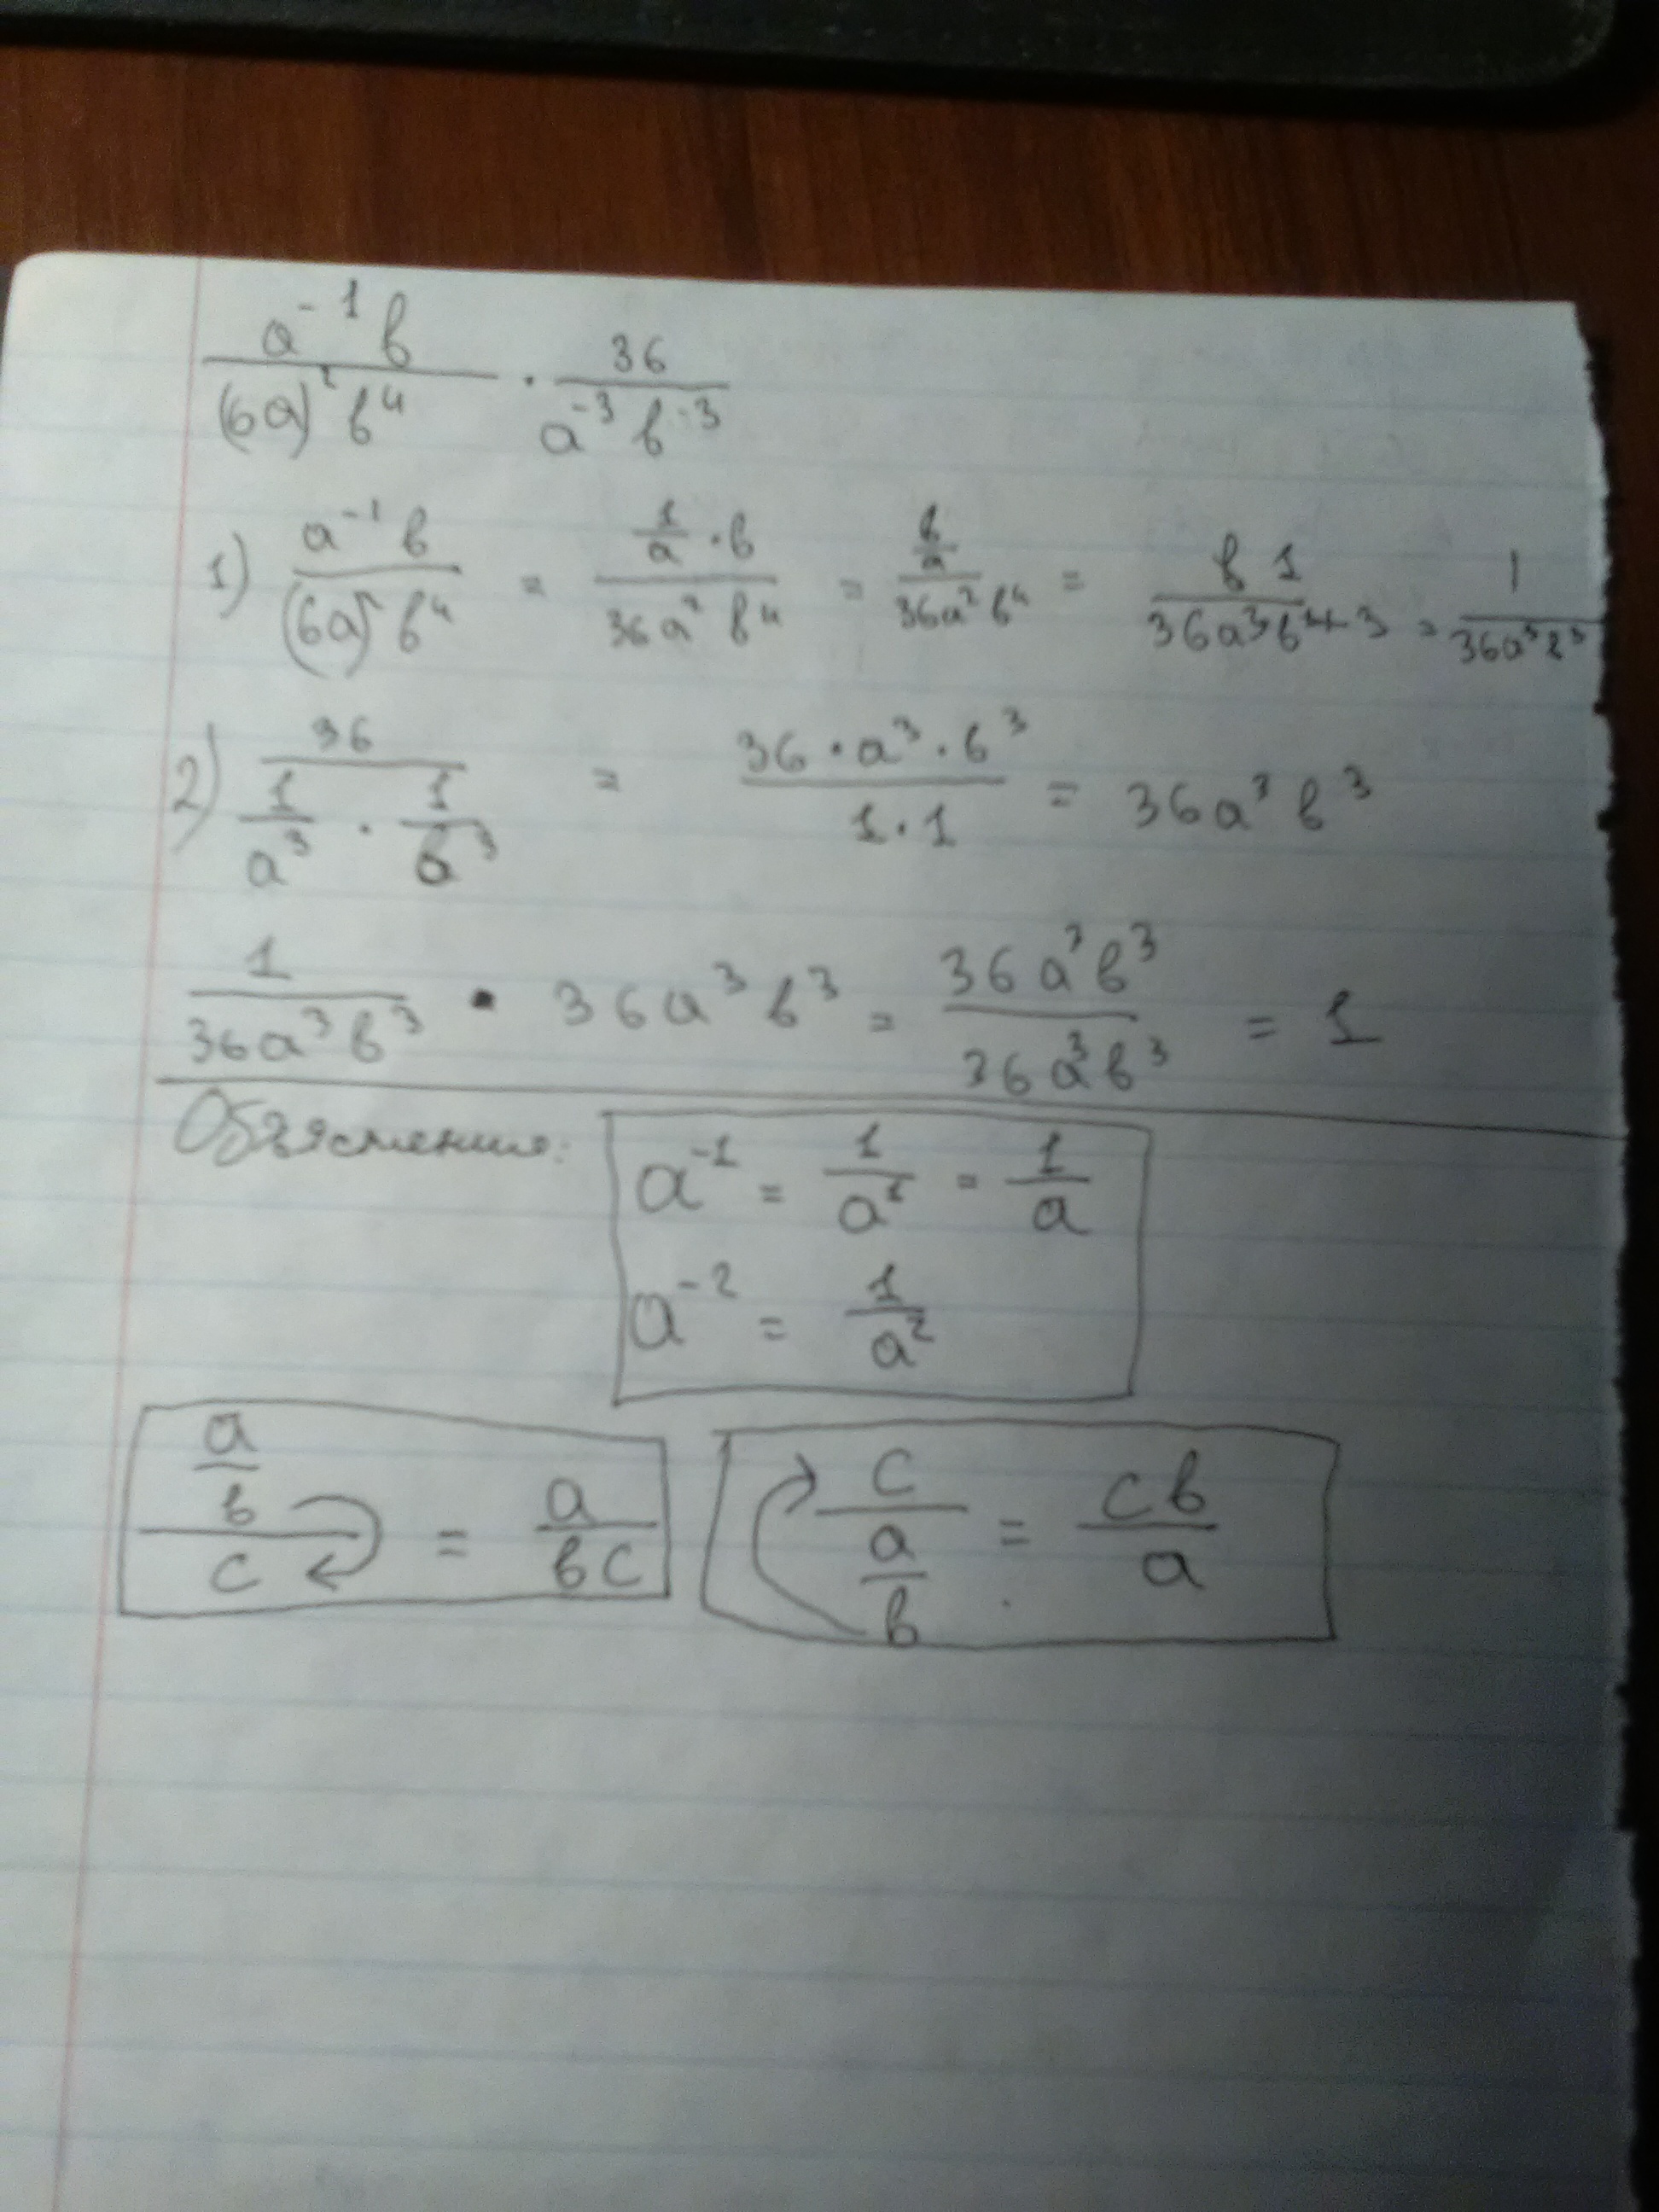 a⁻¹ в / (6a)² в⁴ · 36 / a⁻³ в⁻³
1) a⁻¹ в / (6a)² в⁴ = 1/a · в / 36a² в⁴ = в/a / 36a² в⁴ = в 1 / 36a³в⁴ 3 = 1 / 36a³в³
2) 36 / 1/a³ · 1/в³ = 36 · a³ · в³ / 1 · 1 = 36a³ в³
1 / 36a³в³ · 36a³в³ = 36a³в³ / 36a³в³ = 1
Объяснения:
a⁻¹ = 1/a¹ = 1/a
a⁻² = 1/a²
a/в / c = a / вc
c / a/в = cв / a